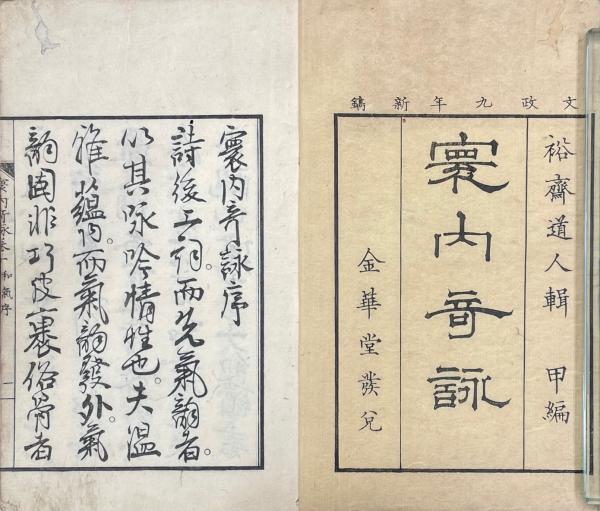 文政九年新鐫
裕齋道人輯 甲編
寰内奇詠
金華堂發兌
寰内奇詠序
詩後工詞。而先氣韻者。
以其咏吟情性也。夫温
雅蘊内。而氣韻發外。氣
韻固非巧皮裹俗骨者
和氣序 一